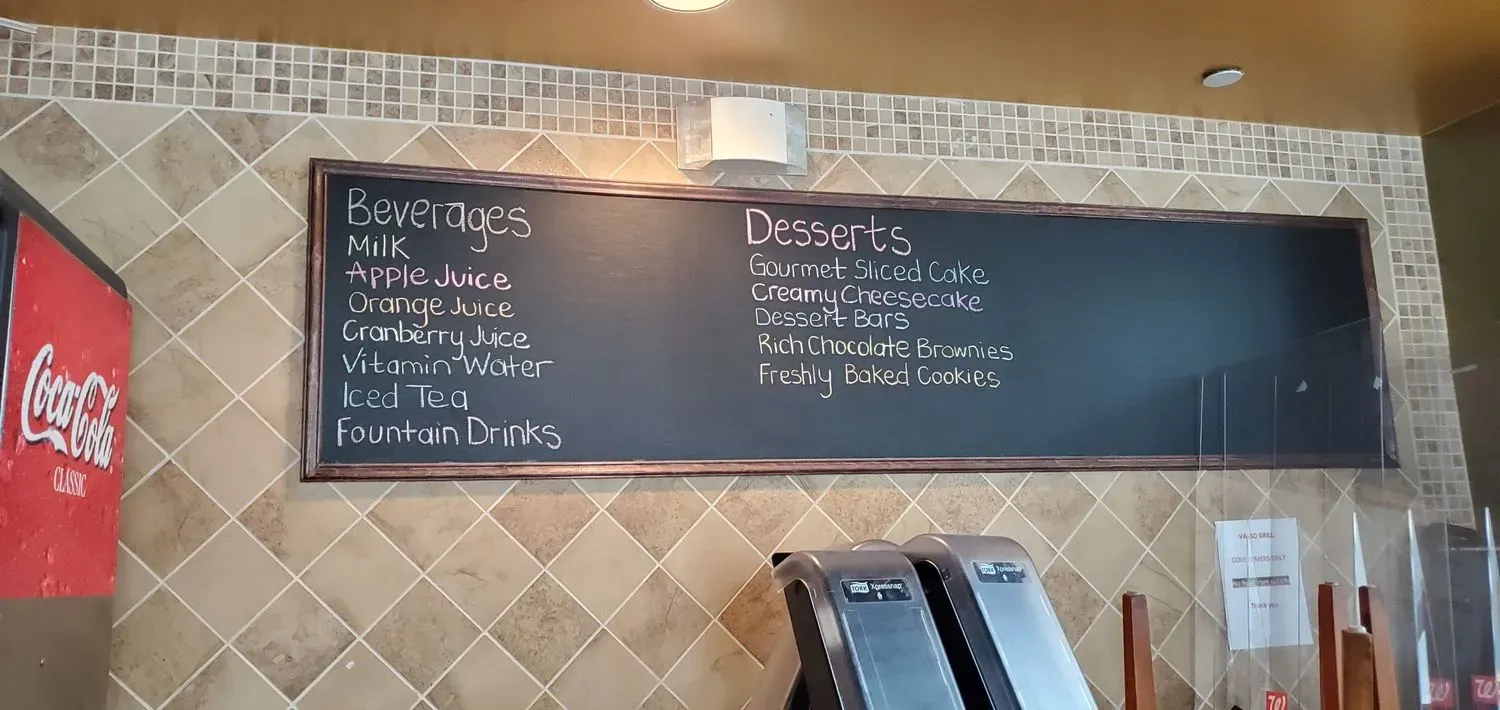 Beverages
Milk
Apple Juice
Orange Juice
Cranberry Juice
Vitamin Water
Iced Tea
Fountain Drinks
Desserts
Gourmet Sliced Cake
Creamy Cheesecake
Dessert Bars
Rich Chocolate Brownies
Freshly Baked Cookies
Coca-Cola
CLASSIC
TORK Xpressnap
TORK Xpressnap
GRILL
ONLY
Thank you